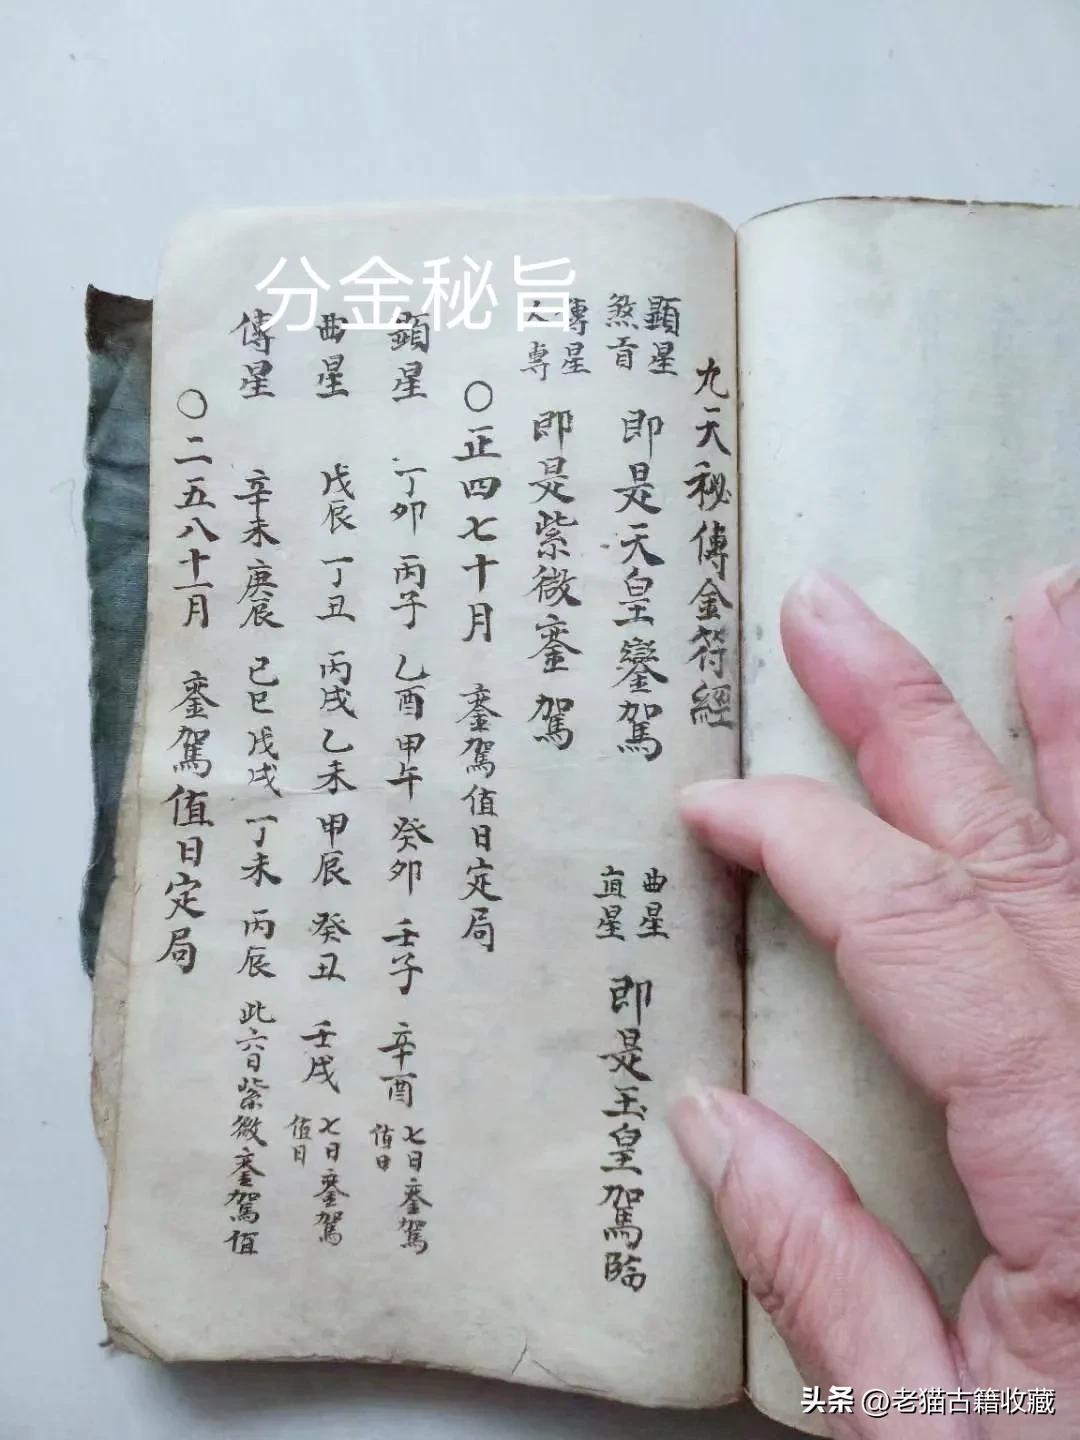 分金秘旨
九天秘傳金符經
顯星
煞貢
即是天皇鑾駕
曲星
直星
即是玉皇駕臨
傳星
人專
即是紫微鑾駕
○正四七十月 鑾駕值日定局
顯星 丁卯 丙子 乙酉 甲午 癸卯 壬子 辛酉 七日鑾駕值日
曲星 戊辰 丁丑 丙戌 乙未 甲辰 癸丑 壬戌 七日鑾駕值日
傳星 辛未 庚辰 己巳 戊戌 丁未 丙辰 此六日紫微鑾駕值
○二五八十一月 鑾駕值日定局
头条 @老猫古籍收藏